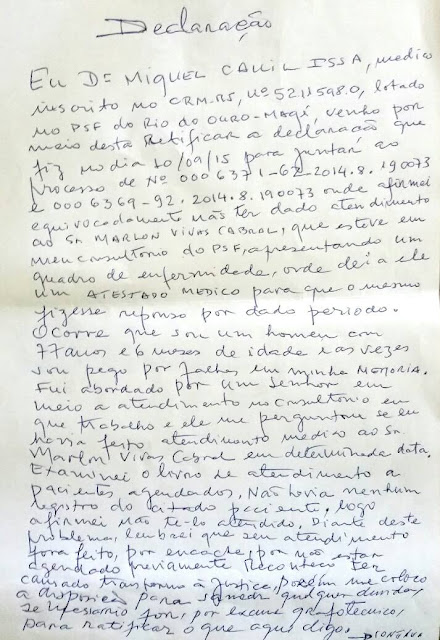 Declaração
Eu Dr Miguel Calil Issa, medico
inscrito no CRM-RS, nº 5211598.0, lotado
no PSF do Rio do Ouro-Magé, venho por
meio desta Retificar a declaração que
fiz no dia 10/09/15 para juntar ao
processo de Nº 0006371-62-2014.8.190073
e 0006369-92.2014.8.190073 onde afirmei
equivocadamente não ter dado atendimento
ao Sr MARLON VIVAS CABRAL, que esteve em
meu consultorio do PSF, apresentando um
quadro de enfermidade, onde dei a ele
um ATESTADO MEDICO para que o mesmo
fizesse repouso por dado periodo.
Ocorre que sou um homem com
77 anos e 6 meses de idade e as vezes
sou pego por falhas em minha MEMORIA.
Fui abordado por um senhor em
meio a atendimento no consultorio em
que trabalho e ele me perguntou se eu
havia feito atendimento medico ao Sr.
Marlon Vivas Cabral em determinada data.
Examinei o livro de atendimento a
pacientes agendados, Não havia nenhum
registro do citado paciente, logo
afirmei não te-lo atendido. Diante deste
problema, lembrei que seu atendimento
fora feito, por encaixe, por não estar
agendado previamente. Reconheço ter
causado transtorno à Justiça, porém me coloco
a disposição para sanar quaisquer duvidas,
se necessario for, por exame grafotecnico,
para ratificar o que aqui digo.